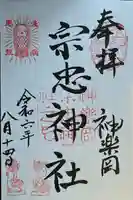 奉拝
神楽岡
宗忠神社
令和六年
八月十四日